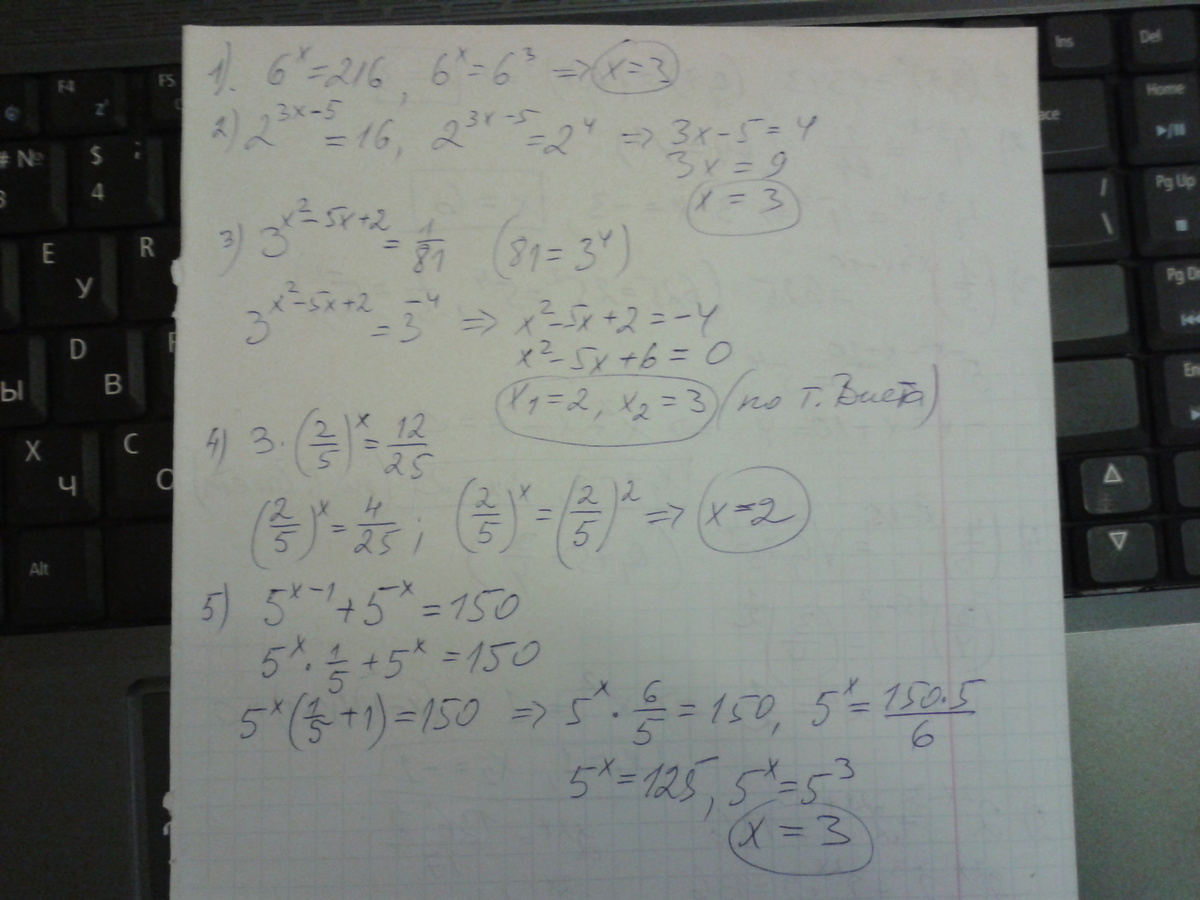 1). 6^x = 216, 6^x = 6^3 => x = 3
2) 2^{3x-5} = 16, 2^{3x-5} = 2^4 => 3x-5 = 4
3x = 9
x = 3
3) 3^{x^2-5x+2} = 1/81 (81 = 3^4)
3^{x^2-5x+2} = 3^{-4} => x^2-5x+2 = -4
x^2-5x+6 = 0
x_1 = 2, x_2 = 3 (по т. Виета)
4) 3·(2/5)^x = 12/25
(2/5)^x = 4/25; (2/5)^x = (2/5)^2 => x = 2
5) 5^{x-1} + 5^{-x} = 150
5^x · 1/5 + 5^x = 150
5^x (1/5 + 1) = 150 => 5^x · 6/5 = 150, 5^x = 150·5/6
5^x = 125, 5^x = 5^3
x = 3
F4
F5
Ins
Del
Home
# №
3
$ ;
4
E
У
R
/
\
Pg Up
D
В
Ы
Ч
Х
С
Alt